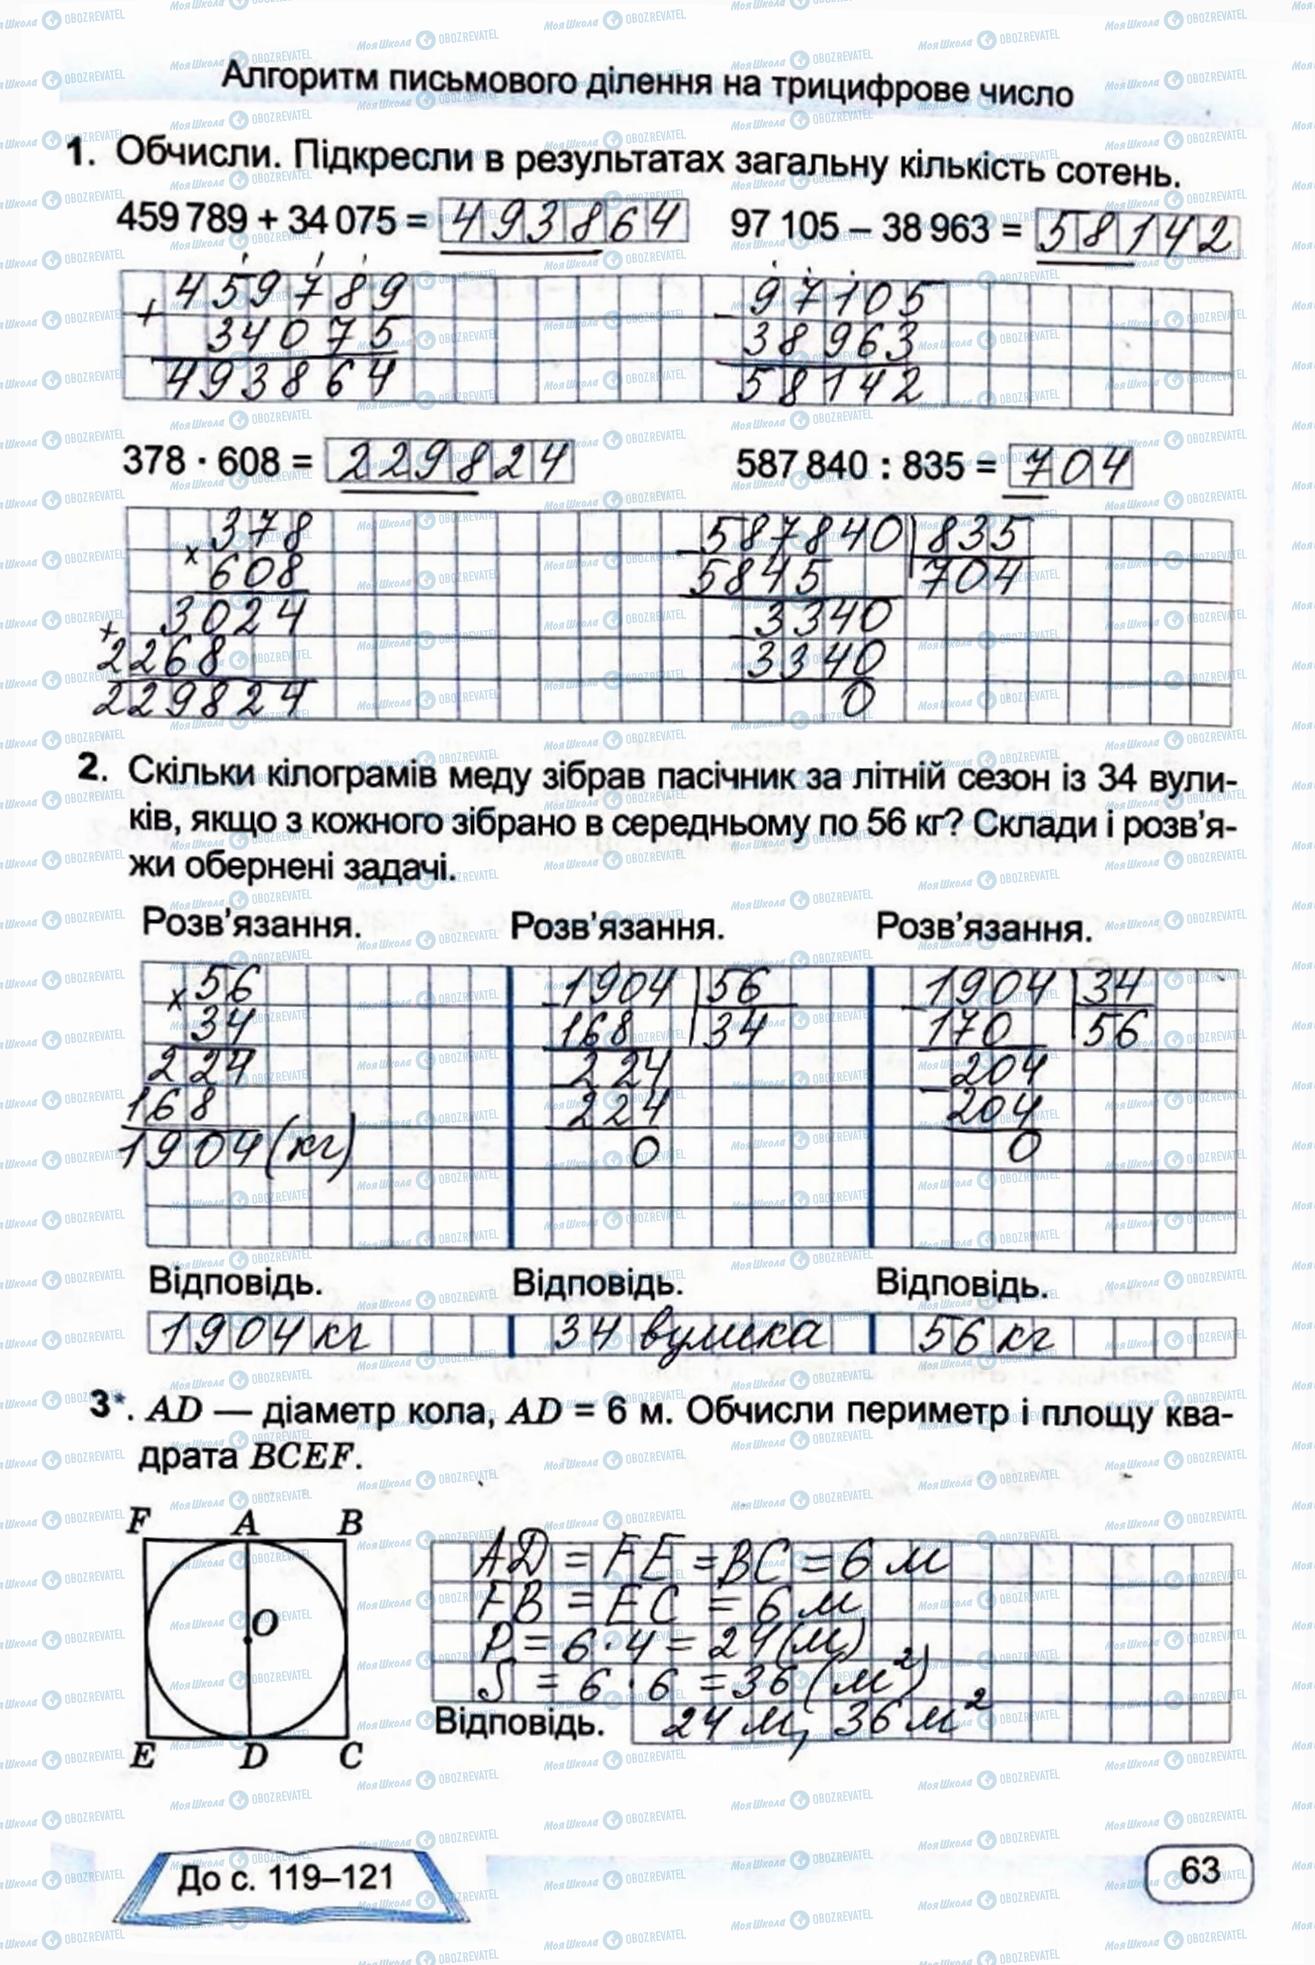 Алгоритм письмового ділення на трицифрове число
1. Обчисли. Підкресли в результатах загальну кількість сотень.
459 789 + 34 075 = 493864 97 105 – 38 963 = 58142
459789
+ 34075
493864
– 97105
38963
58142
378 · 608 = 229824 587 840 : 835 = 704
378
× 608
3024
+ 2268
229824
– 587840 835
5845 704
– 3340
3340
0
2. Скільки кілограмів меду зібрав пасічник за літній сезон із 34 вули-
ків, якщо з кожного зібрано в середньому по 56 кг? Склади і розв'я-
жи обернені задачі.
Розв'язання. Розв'язання. Розв'язання.
56
× 34
224
168
1904 (кг)
– 1904 56
168 34
– 224
224
0
– 1904 34
170 56
– 204
204
0
Відповідь. Відповідь. Відповідь.
1904 кг 34 вулика 56 кг
3*. AD — діаметр кола, AD = 6 м. Обчисли периметр і площу ква-
драта BCEF.
F A B
O
E D C
AD = FE = BC = 6 м
FB = EC = 6 м
P = 6 · 4 = 24 (м)
S = 6 · 6 = 36 (м²)
Відповідь. 24 м, 36 м²
До с. 119–121
63
МояШкола OBOZREVATEL